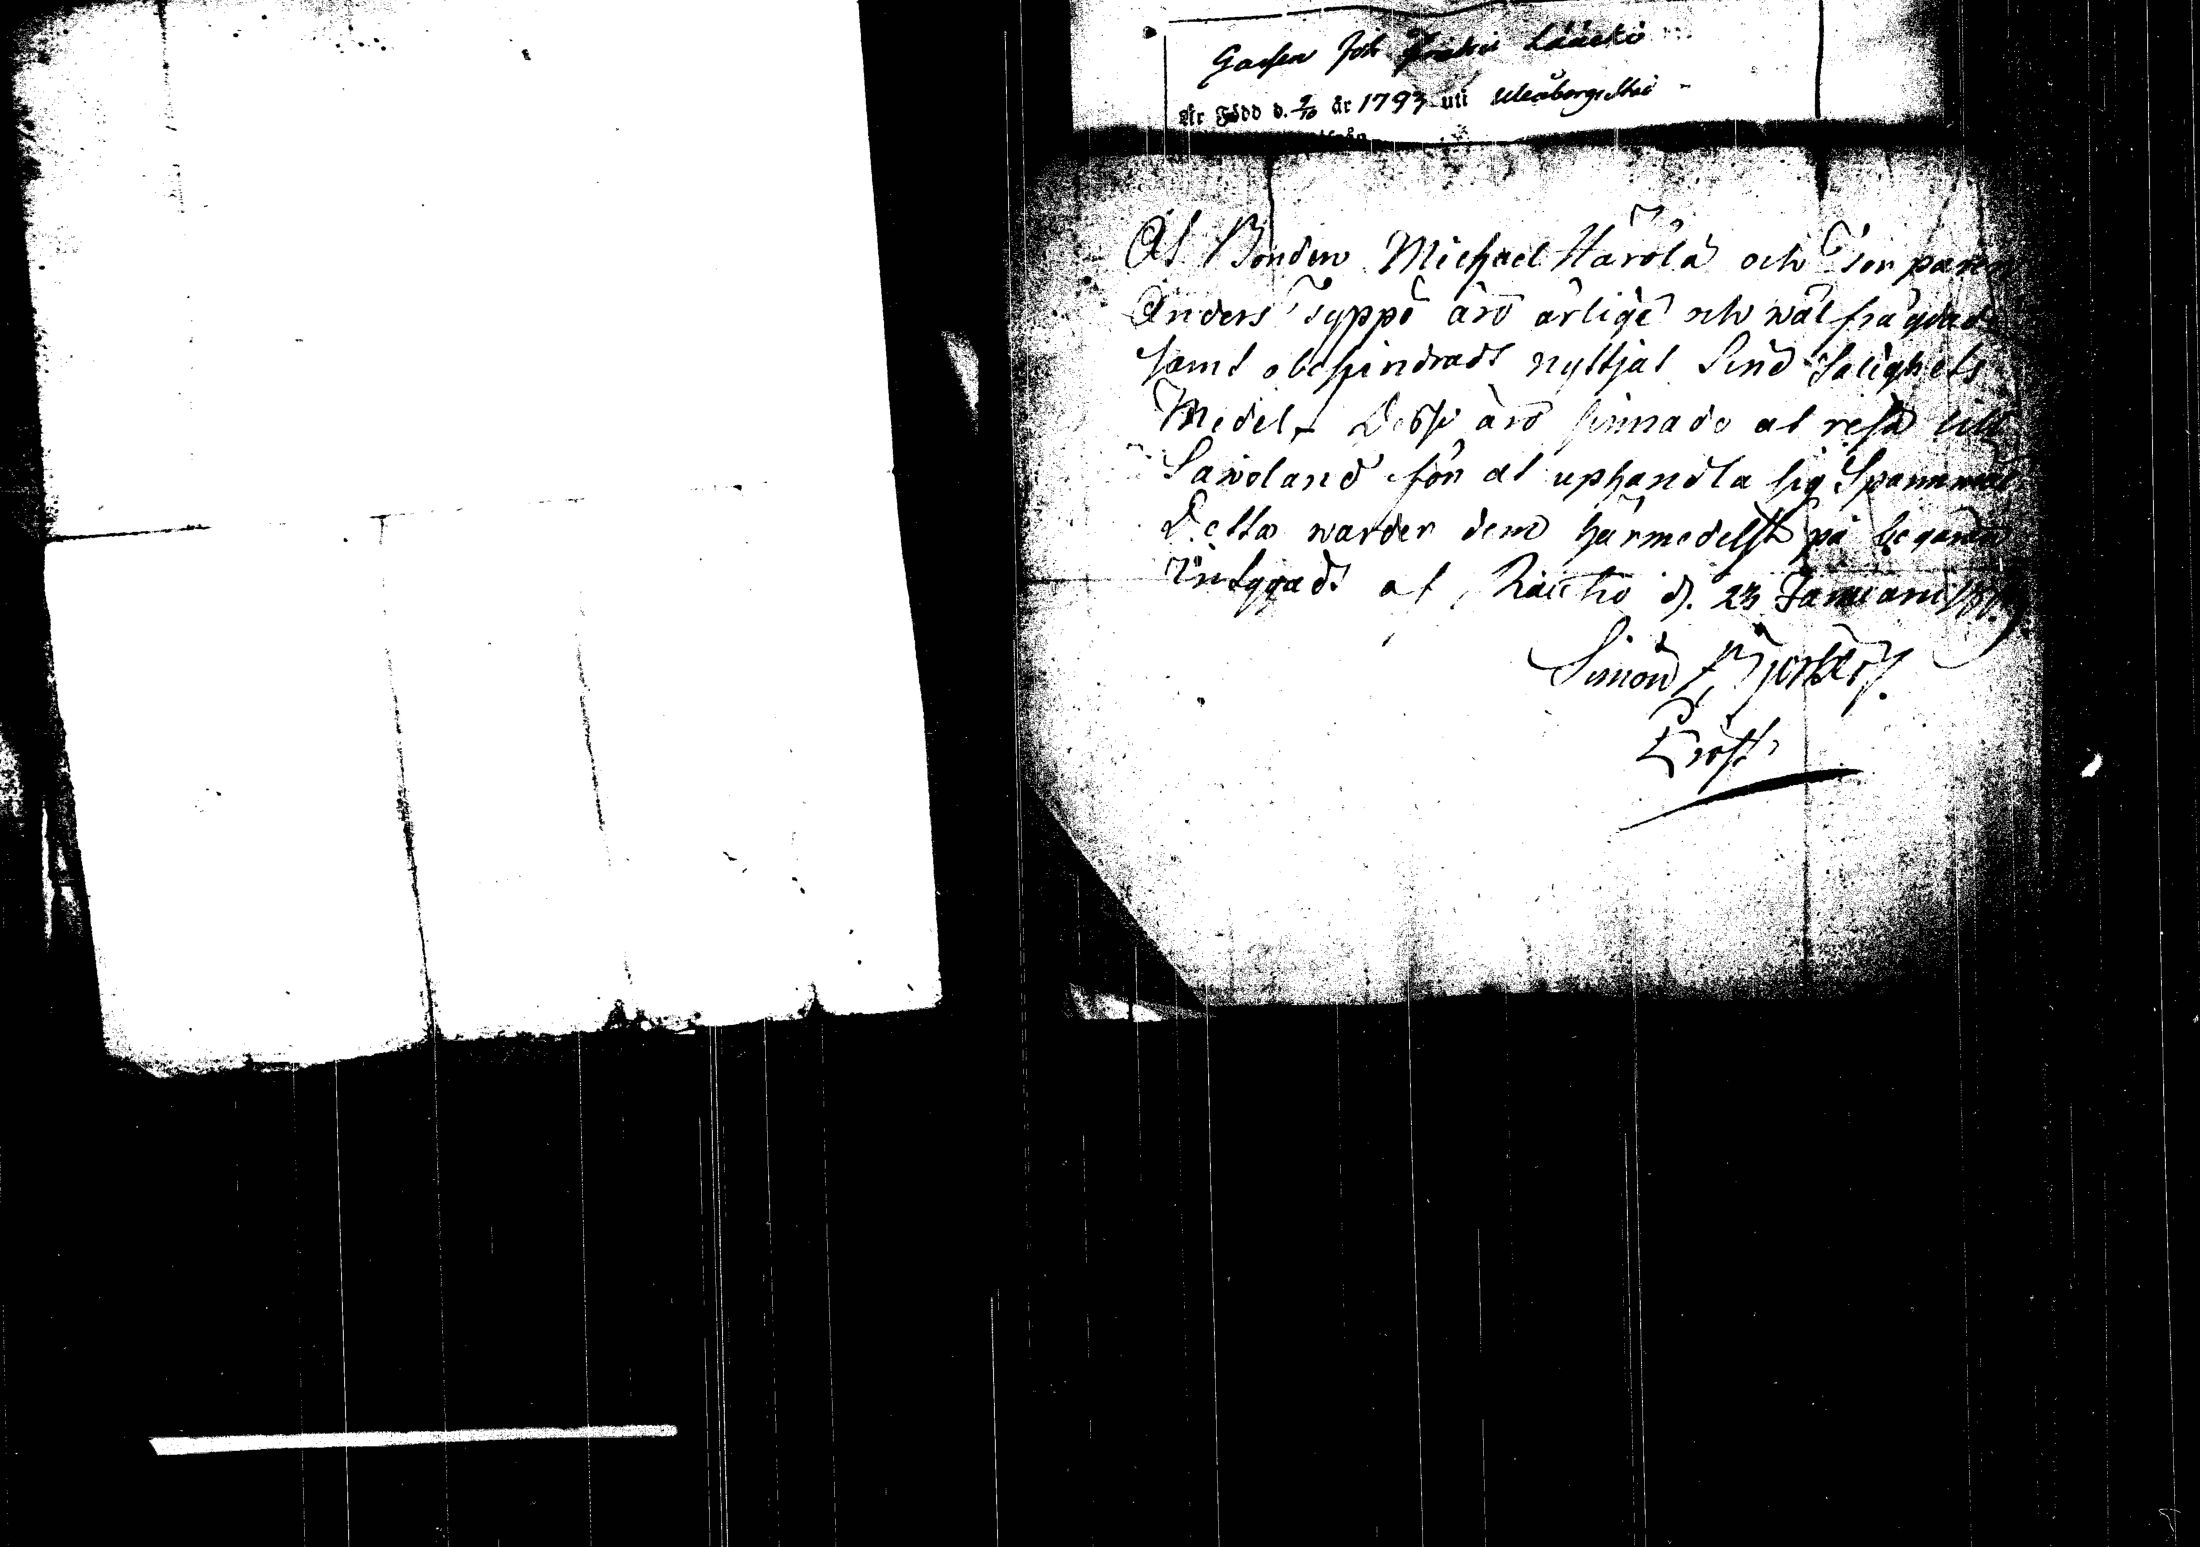 Gossen Joh
Är Född d. 9/10 år 1793 uti Uleåborgs Stad
At Bonden Michael Härölä och Torparen
Anders Typpö äro ärlige och wäl frägdade
samt obehindradt nyttjat Sina Salighets
Medel, Desse äro sinnade at resa till
Sawoland för at uphandla sig Spannmål
Detta warder dem härmedelst på begäran
Intygadt af, Rautio d. 23 Januarii
Simon